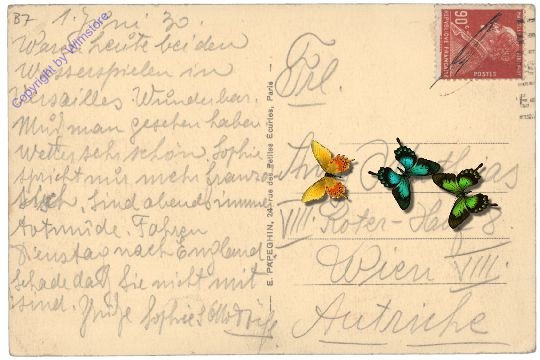 B7 1. Juni 30.
Waren heute bei den
Wasserspielen in
Versailles Wunderbar.
Muß man gesehen haben
Wetter sehr schön. Sophie
spricht nur mehr französ
isch. Sind abends immer
totmüde. Fahren
Dienstag nach England
schade daß Sie nicht mit
sind. Sophie
Copyright by Wimstore
E. PAPEGHIN, 24 rue des Petites Ecuries, Paris
90c
POSTES
Frl.
VIII. Roter-Hof 8
Wien VIII.
Autriche